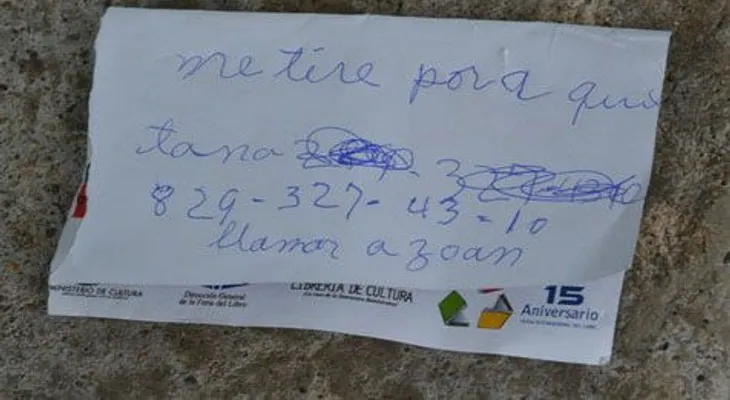 me tire por a qui
tano 3
829-327-43-10
llamar a zoan
MINISTERIO DE CULTURA
Dirección General
de la Feria del Libro
LIBRERÍA DE CULTURA
15
Aniversario